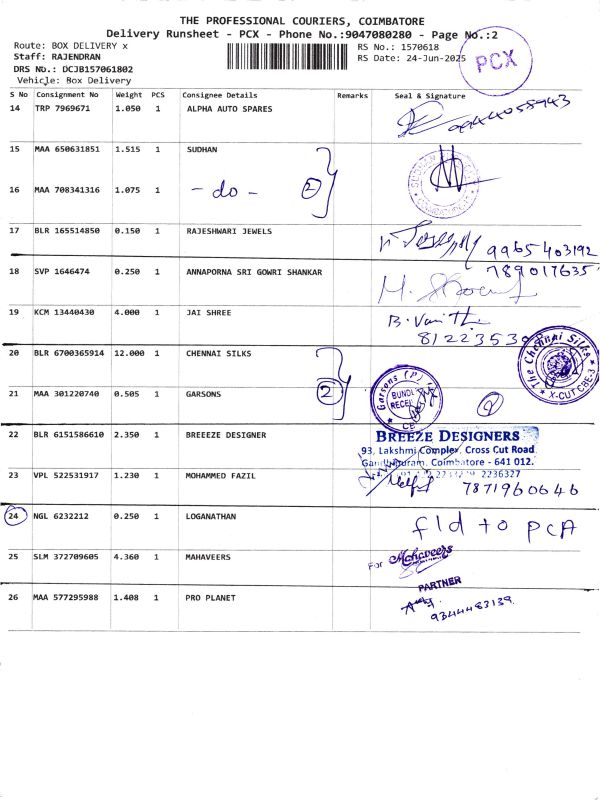 THE PROFESSIONAL COURIERS, COIMBATORE
Delivery Runsheet - PCX - Phone No.:9047080280 - Page No.:2
Route: BOX DELIVERY x
RS No.: 1570618
Staff: RAJENDRAN
RS Date: 24-Jun-2025
PCX
DRS No.: DCJB157061802
Vehicle: Box Delivery
S No Consignment No Weight PCS Consignee Details Remarks Seal & Signature
14 TRP 7969671 1.050 1 ALPHA AUTO SPARES
9944058943
15 MAA 650631851 1.515 1 SUDHAN
16 MAA 708341316 1.075 1 - do - 2
17 BLR 165514850 0.150 1 RAJESHWARI JEWELS
9965403192
18 SVP 1646474 0.250 1 ANNAPORNA SRI GOWRI SHANKAR
789017635
19 KCM 13440430 4.000 1 JAI SHREE
81223530
20 BLR 6700365914 12.000 1 CHENNAI SILKS
The Chennai Silks
X-CUT CBE-3
21 MAA 301220740 0.505 1 GARSONS 2
Garsons (P)
BUNDL
RECEI
2
22 BLR 6151586610 2.350 1 BREEEZE DESIGNER
BREEZE DESIGNERS
93, Lakshmi Complex, Cross Cut Road
Gandhipuram, Coimbatore - 641 012.
2236327
23 VPL 522531917 1.230 1 MOHAMMED FAZIL
7871960646
24 NGL 6232212 0.250 1 LOGANATHAN
fld to PCA
25 SLM 372709605 4.360 1 MAHAVEERS
For Mahaveers
PARTNER
26 MAA 577295988 1.408 1 PRO PLANET
9344483139